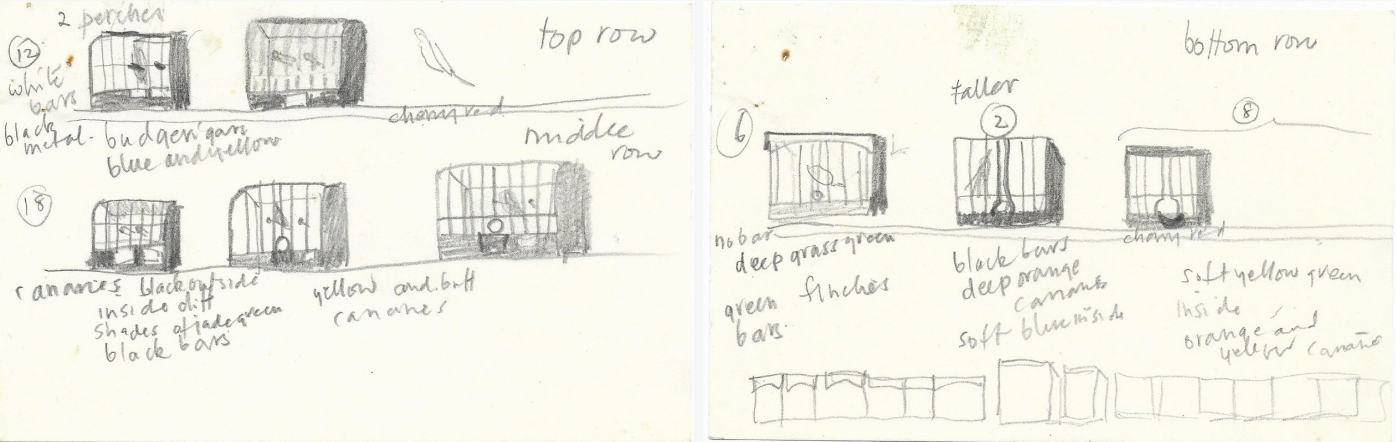 2 perches
top row
12
white
bars
black
metal.
cherry red
budgerigars
blue and yellow
middle
row
18
canaries black outside
inside diff
shades of jade green
black bars
yellow and buff
canaries
bottom row
taller
6
2
8
no bar
deep grass green
green finches
bars
black bars
deep orange
canaries
soft blue inside
cherry red
soft yellow green
inside
orange and
yellow canaries